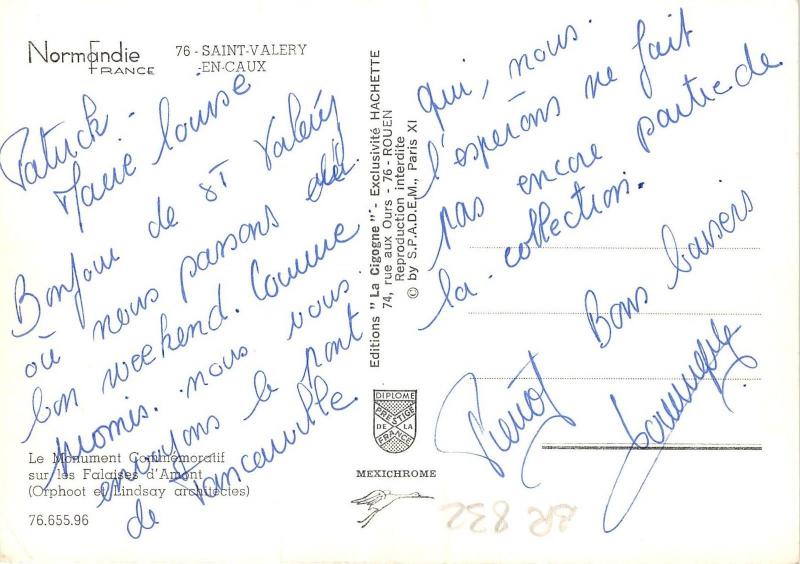 Normandie
FRANCE
76 - SAINT-VALERY
-EN-CAUX
Patrick -
Marie Louise
Bonjour de ST Valéry
où nous passons un
bon weekend. Comme
promis. nous vous
envoyons le pont
de Tancarville
Le Monument Commémoratif
sur les Falaises d'Amont
(Orphoot et Lindsay architectes)
76.655.96
Editions "La Cigogne" - Exclusivité HACHETTE
74, rue aux Ours - 76 - ROUEN
Reproduction interdite
© by S.P.A.D.E.M., Paris XI
DIPLOME
PRESTIGE
DE LA
FRANCE
MEXICHROME
qui, nous.
l'espérons ne fait
pas encore partie de
la collection.
Bons baisers
Pierrot
BR 832